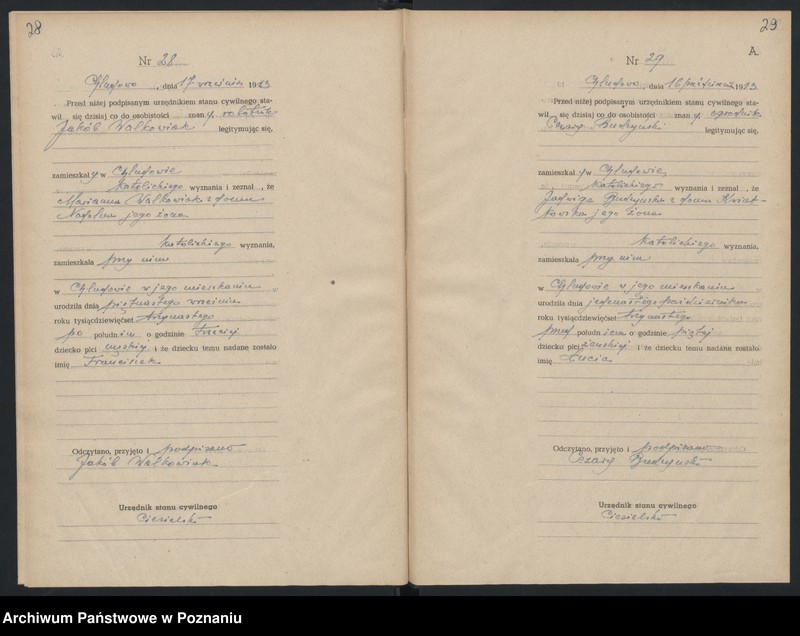 28
Nr 28
Chludowo, dnia 17 września 1913
Przed niżej podpisanym urzędnikiem stanu cywilnego sta-
wił się dzisiaj co do osobistości znany, robotnik
Jakób Walkowiak legitymując się,
zamieszkały w Chludowie
katolickiego wyznania i zeznał, że
Marianna Walkowiak z domu
jego żona
katolickiego wyznania,
zamieszkała przy nim
w Chludowie w jego mieszkaniu
urodziła dnia piętnastego września
roku tysiącdziewięćset trzynastego
po południu o godzinie trzeciej
dziecko płci męskiej i że dziecku temu nadane zostało
imię Franciszek
Odczytano, przyjęto i podpisano
Jakób Walkowiak
Urzędnik stanu cywilnego
Ciesielski
29
A.
Nr 29
Chludowo, dnia 16 października 1913
Przed niżej podpisanym urzędnikiem stanu cywilnego sta-
wił się dzisiaj co do osobistości znany, ogrodnik
Cezary Budzyński legitymując się,
zamieszkały w Chludowie,
katolickiego wyznania i zeznał, że
Jadwiga Budzyńska z domu Kwiat-
kowska jego żona
katolickiego wyznania,
zamieszkała przy nim
w Chludowie w jego mieszkaniu
urodziła dnia jedenastego października
roku tysiącdziewięćset trzynastego
przed południem o godzinie piątej
dziecko płci żeńskiej i że dziecku temu nadane zostało
imię Łucia
Odczytano, przyjęto i podpisano
Cezary Budzyński
Urzędnik stanu cywilnego
Ciesielski
Archiwum Państwowe w Poznaniu